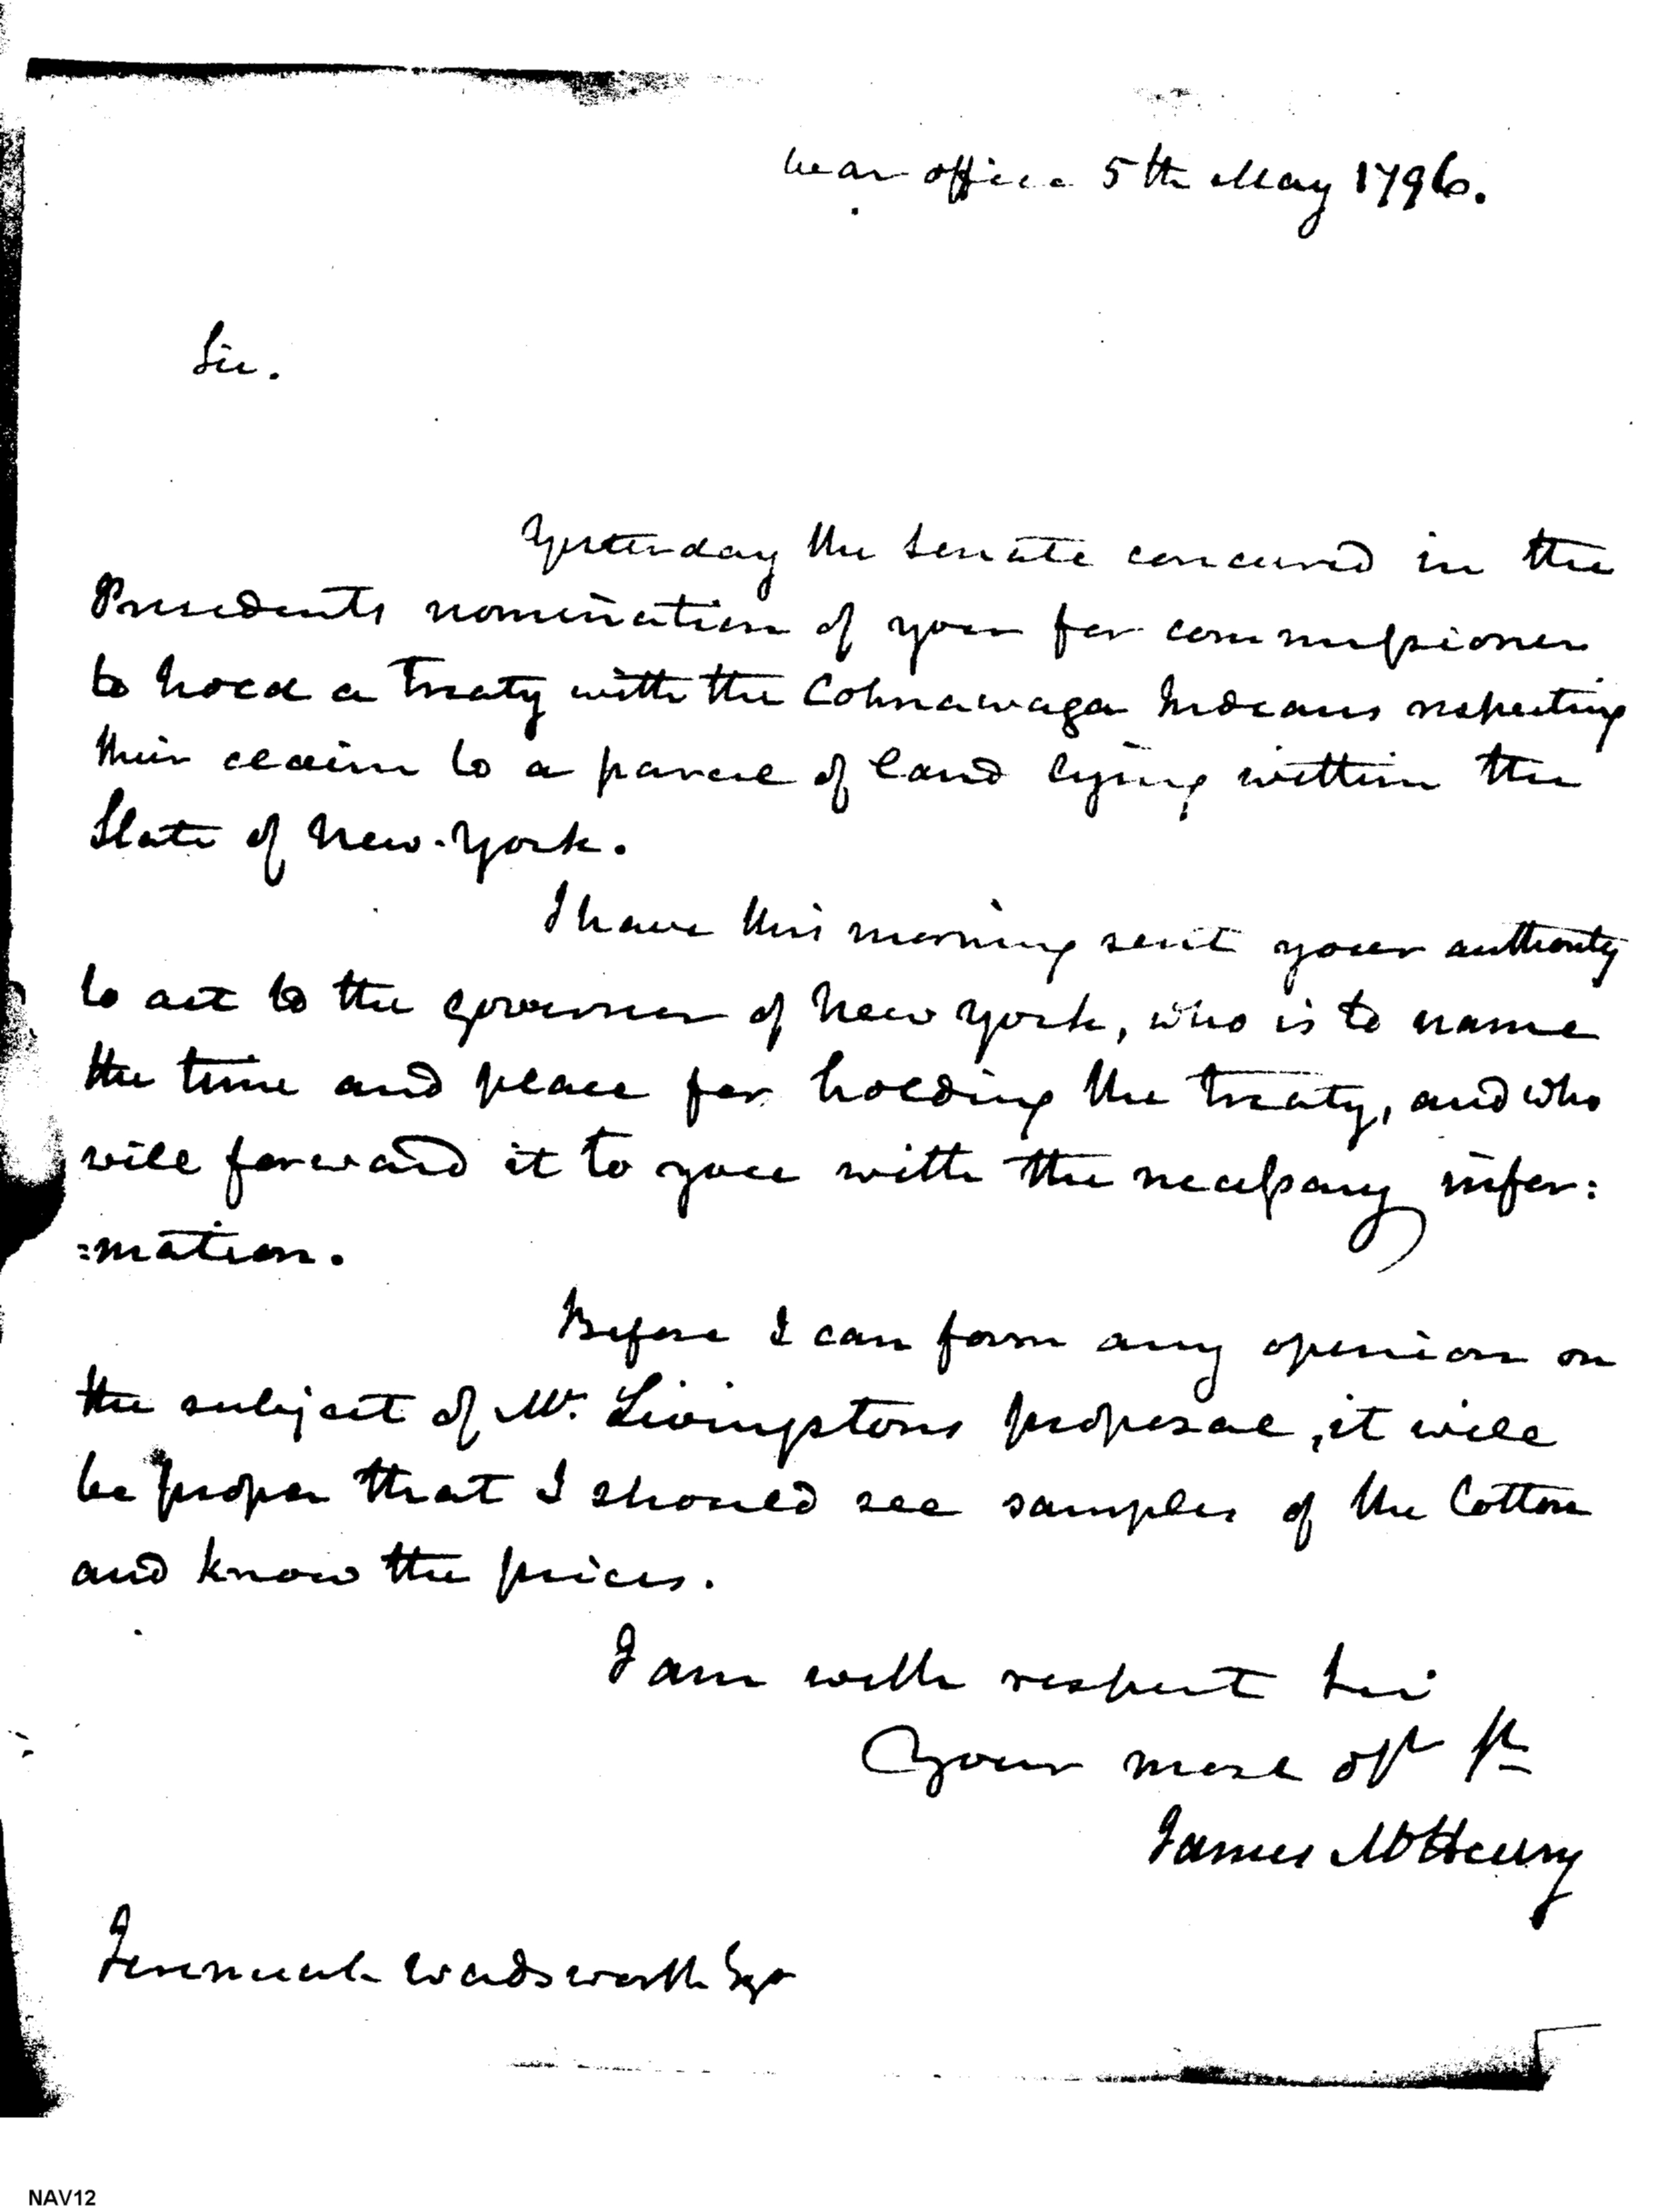 War office 5th May 1796.
Sir.
Yesterday the Senate concured in the
Presidents nomination of you for commissioner
to hold a treaty with the Cohnawaga Indians respecting
their claim to a parcel of land lying within the
State of New-York.
I have this morning sent your authority
to act to the governor of New York, who is to name
the time and place for holding the treaty, and who
will forward it to you with the necessary infor:
:mation.
Before I can form any opinion on
the subject of Mr. Livingstons proposal, it will
be proper that I should see samples of the Cotton
and know the prices.
I am with respect Sir
Your most obt st
James McHenry
Jeremiah Wadsworth Esqr
NAV12